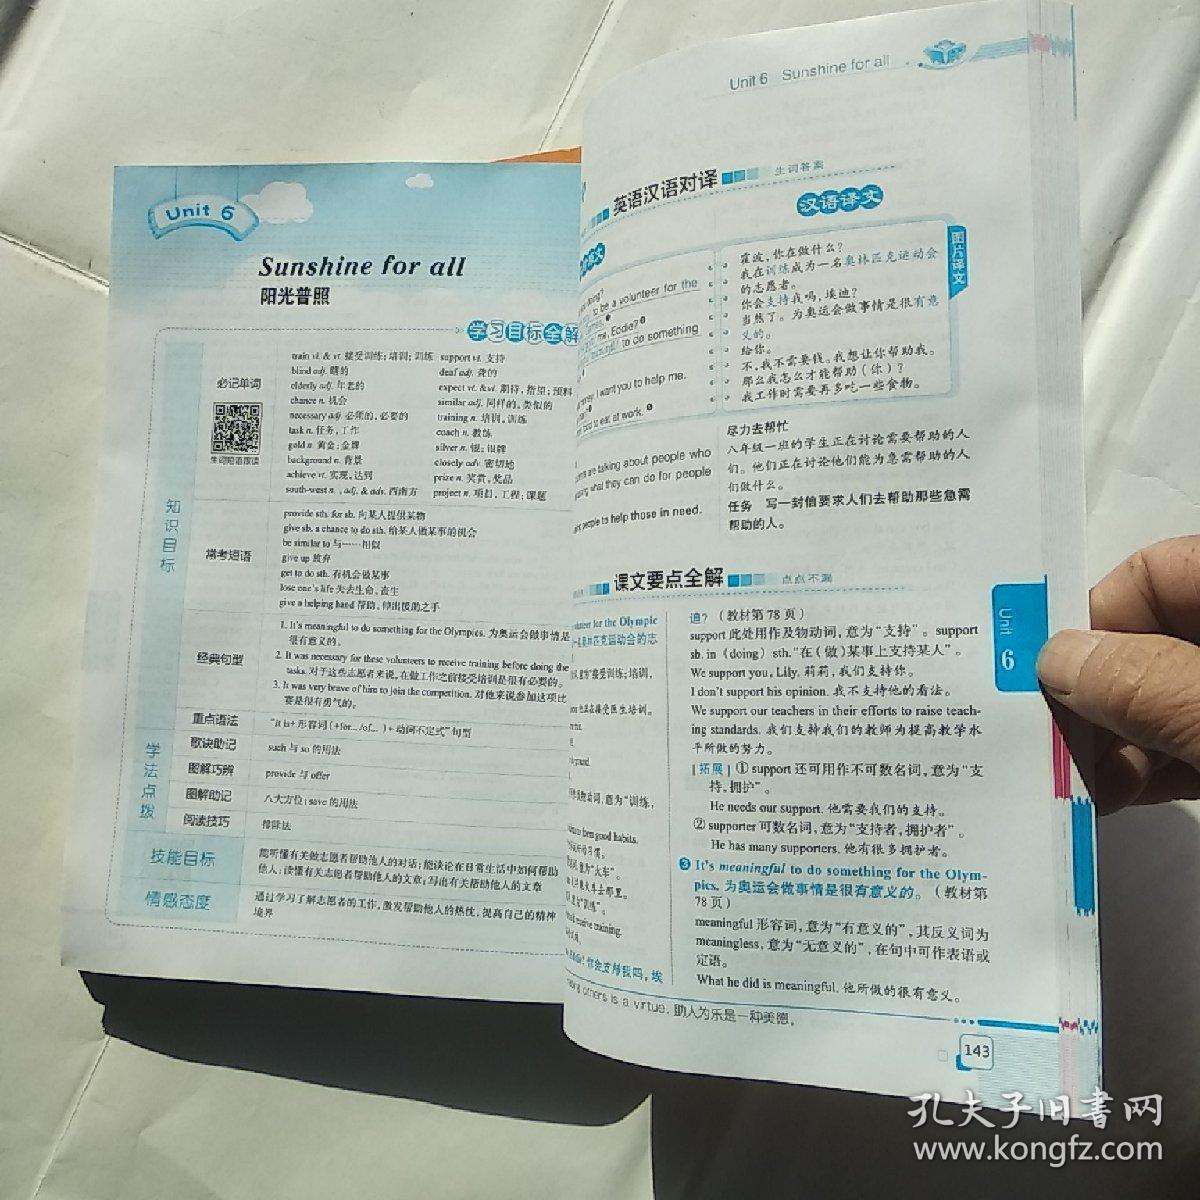 Unit 6
Sunshine for all
阳光普照
学习目标全解
知识目标
必记单词
生词短语跟读
train vi. & vt. 接受训练;培训;训练 support vt. 支持
blind adj. 瞎的 deaf adj. 聋的
elderly adj. 年老的 expect vt. & vi. 期待,指望;预料
chance n. 机会 similar adj. 同样的,类似的
necessary adj. 必须的,必要的 training n. 培训,训练
task n. 任务,工作 coach n. 教练
gold n. 黄金;金牌 silver n. 银;银牌
background n. 背景 closely adv. 密切地
achieve vt. 实现,达到 prize n. 奖赏,奖品
south-west n. , adj. & adv. 西南方 project n. 项目,工程;课题
常考短语
provide sth. for sb. 向某人提供某物
give sb. a chance to do sth. 给某人做某事的机会
be similar to 与……相似
give up 放弃
get to do sth. 有机会做某事
lose one's life 失去生命,丧生
give a helping hand 帮助,伸出援助之手
经典句型
1. It's meaningful to do something for the Olympics. 为奥运会做事情是
很有意义的。
2. It was necessary for these volunteers to receive training before doing the
tasks. 对于这些志愿者来说,在做工作之前接受培训是很有必要的。
3. It was very brave of him to join the competition. 对他来说参加这项比
赛是很有勇气的。
重点语法
“it is+形容词(+for.../of...)+动词不定式”句型
学法点拨
歌诀助记
such 与 so 的用法
图解巧辨
provide 与 offer
图解助记
八大方位;save 的用法
阅读技巧
排除法
技能目标
能听懂有关做志愿者帮助他人的对话;能谈论在日常生活中如何帮助
他人;读懂有关志愿者帮助他人的文章;写出有关帮助他人的文章
情感态度
通过学习了解志愿者的工作,激发帮助他人的热忱,提高自己的精神
境界
Unit 6 Sunshine for all
英语汉语对译
生词答案
汉语译文
图片译文
doing?
to be a volunteer for the
me, Eddie?
to do something
money. I want you to help me.
food to eat at work.
霍波,你在做什么?
我在训练成为一名奥林匹克运动会
的志愿者。
你会支持我吗,埃迪?
当然了。为奥运会做事情是很有意
义的。
给你。
不,我不需要钱。我想让你帮助我。
那么我怎么才能帮助(你)?
我工作时需要再多吃一些食物。
are taking about people who
what they can do for people
people to help those in need.
尽力去帮忙
八年级一班的学生正在讨论需要帮助的人
们。他们正在讨论他们能为急需帮助的人
们做什么。
任务 写一封信要求人们去帮助那些急需
帮助的人。
课文要点全解
点点不漏
for the Olympic
林匹克运动会的志
接受训练;培训,
正在接受医生培训。
词,意为“训练,
to form good habits.
意为“火车”。
“训练”。
receive training.
你会支持我吗,埃
迪?(教材第 78 页)
support 此处用作及物动词,意为“支持”。support
sb. in (doing) sth.“在(做)某事上支持某人”。
We support you, Lily. 莉莉,我们支持你。
I don't support his opinion. 我不支持他的看法。
We support our teachers in their efforts to raise teach-
ing standards. 我们支持我们的教师为提高教学水
平所做的努力。
[拓展] ① support 还可用作不可数名词,意为“支
持,拥护”。
He needs our support. 他需要我们的支持。
② supporter 可数名词,意为“支持者,拥护者”。
He has many supporters. 他有很多拥护者。
❸ It's meaningful to do something for the Olym-
pics. 为奥运会做事情是很有意义的。(教材第
78 页)
meaningful 形容词,意为“有意义的”,其反义词为
meaningless,意为“无意义的”,在句中可作表语或
定语。
What he did is meaningful. 他所做的很有意义。
others is a virtue. 助人为乐是一种美德。
143
Unit 6
孔夫子旧书网
www.kongfz.com